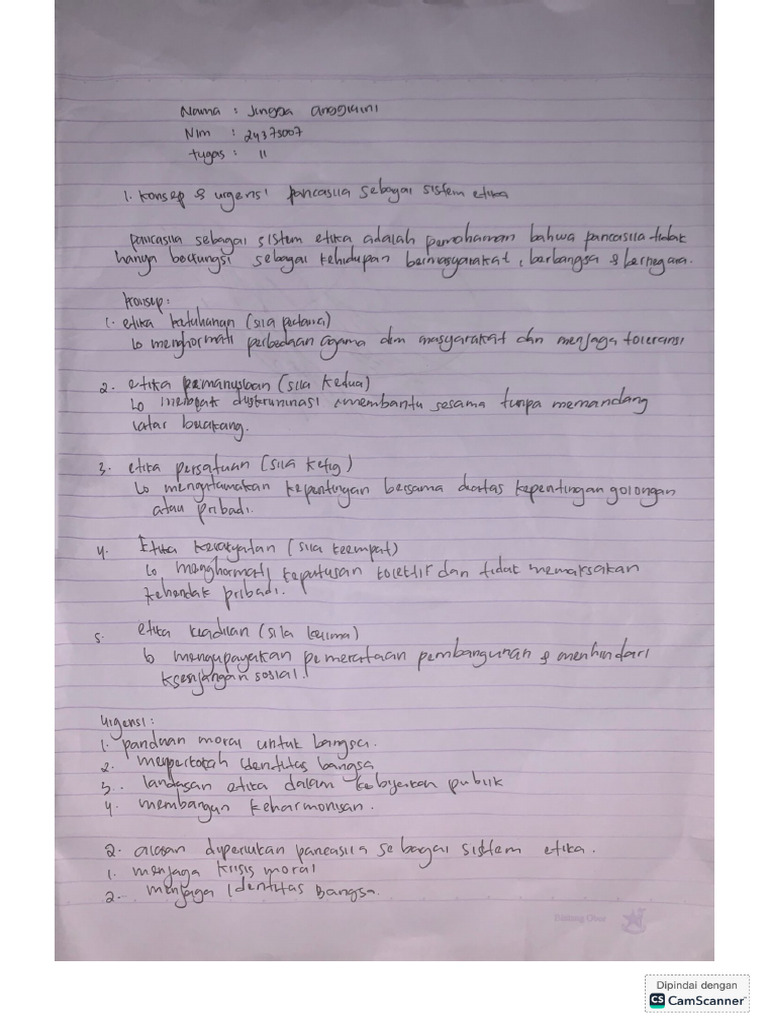 Nama : Jingga anggraini
Nim : 24375007
tugas : 11
1. Konsep & urgensi pancasila sebagai sistem etika
pancasila sebagai sistem etika adalah pemahaman bahwa pancasila tidak
hanya berfungsi sebagai kehidupan bermasyarakat, berbangsa & bernegara.
konsep:
1. etika ketuhanan (sila pertama)
↳ menghormati perbedaan agama dlm masyarakat dan menjaga toleransi
2. etika kemanusiaan (sila kedua)
↳ menolak diskriminasi, membantu sesama tanpa memandang
latar belakang.
3. etika persatuan (sila ketig)
↳ mengutamakan kepentingan bersama diatas kepentingan golongan
atau pribadi.
4. Etika kerakyatan (sila keempat)
↳ menghormati keputusan kolektif dan tidak memaksakan
kehendak pribadi.
5. etika keadilan (sila kelima)
↳ mengupayakan pemerataan pembangunan & menhindari
ksenjangan sosial.
urgensi:
1. panduan moral untuk bangsa.
2. memperkokoh identitas bangsa
3. landasan etika dalam kebijakan publik
4. membangun keharmonisan.
2. alasan diperlukan pancasila sebagai sistem etika.
1. menjaga krisis moral
2. menjaga Identitas Bangsa.
Bintang Obor
Dipindai dengan
CS CamScanner